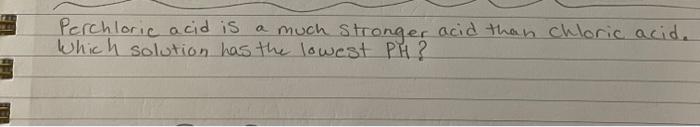 Perchloric acid is a much stronger acid than chloric acid.
Which solution has the lowest PH?